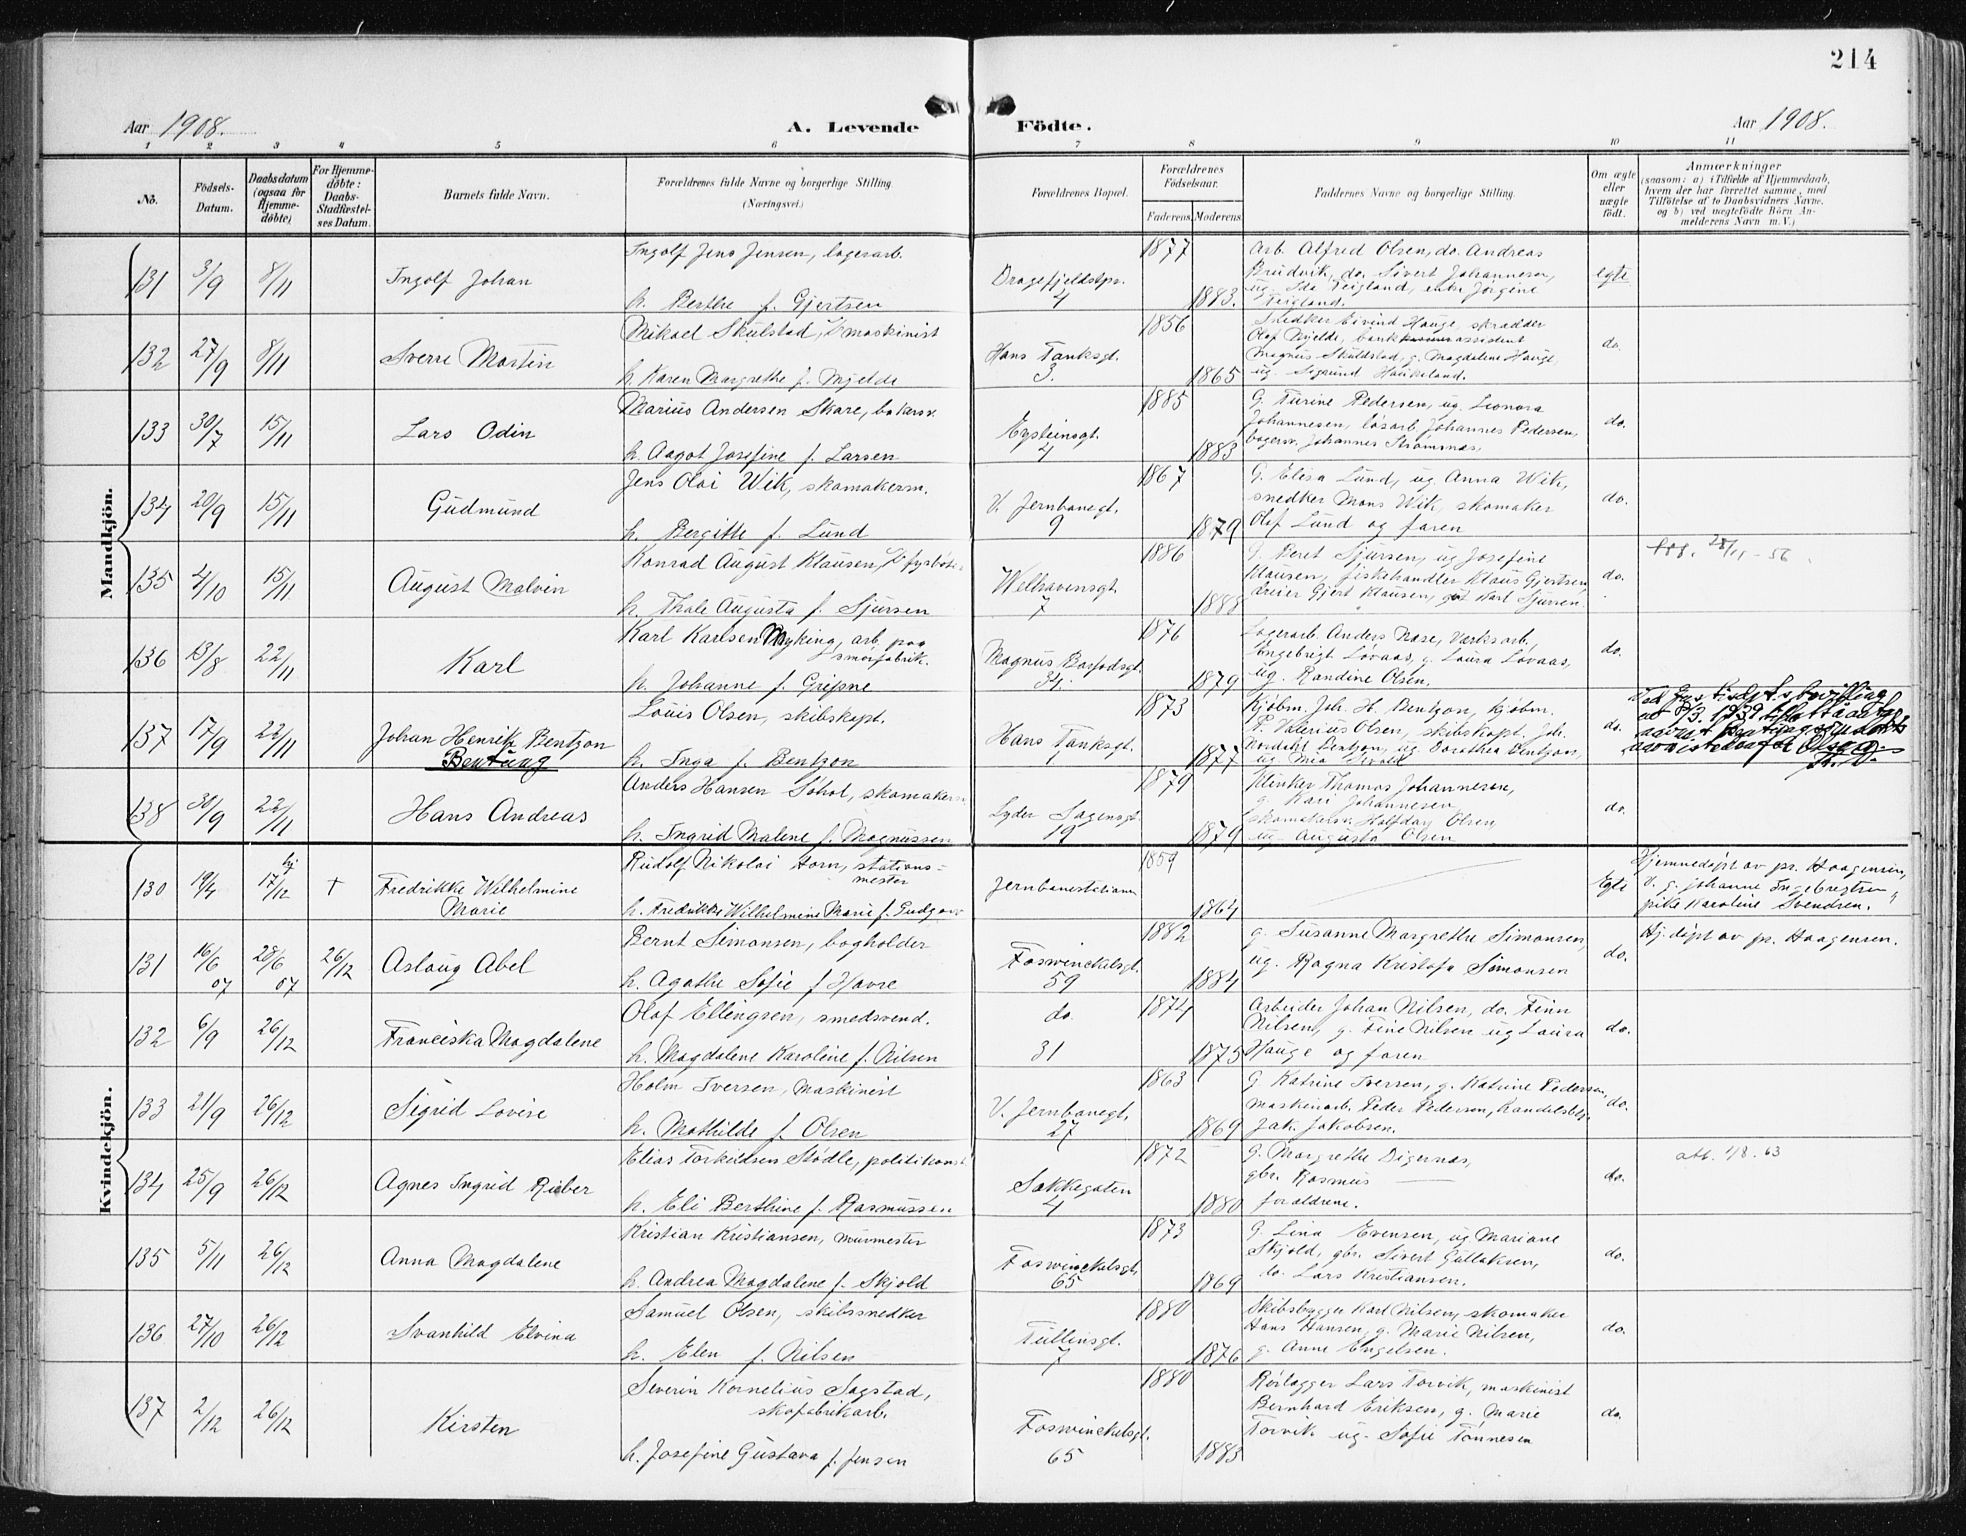 214
Aar 1908.
A. Levende Födte.
Aar 1908.
1 2 3 4 5 6 7 8 9 10 11
No.
Födsels-
Datum.
Daabsdatum
(ogsaa for
Hjemme-
döbte)
For Hjemme-
döbte:
Daabs-
Stadfæstel-
ses Datum.
Barnets fulde Navn.
Forældrenes fulde Navne og borgerlige Stilling
(Næringsvei.)
Forældrenes Bopæl.
Forældrenes
Födselsaar.
Faderens. Moderens.
Faddernes Navne og borgerlige Stilling.
Om ægte
eller
uægte
födt.
Anmærkninger
(saasom: a) i Tilfælde af Hjemmedaab,
hvem der har forrettet samme, med
Tilföielse af to Daabsvidners Navne,
og b) ved uægtefödte Börn An-
melderens Navn m. V.)
Mandkjön.
131 3/9 8/11 Ingolf Johan
Ingolf Jens Jensen, lagerarb.
h. Berthe f. Gjertsen
Dragefjeldstpr.
4
1877
1883.
Arb. Alfred Olsen, do. Andreas
Brudvik, do. Sivert Johannesen,
ug. Ida Teigland, enke Jørgine
Teigland.
egte
132 27/9 8/11 Sverre Martin
Mikael Skulstad, maskinist
h. Karen Margrethe f. Mjelde
Hans Tanksgt.
3.
1856
1865
Snedker Eivind Hauge, skrædder
Olaf Mjelde, bank assistent
Magnus Skuldstad, g. Magdalene Hauge
ug. Sigrund Haukeland.
do.
133 30/7 15/11 Lars Odin
Marius Andersen Skare, bakersv.
h. Aagot Josefine f. Larsen
Eysteinsgt.
4
1885
1883
G. Turine Pedersen, ug. Leonora
Johannesen, løsarb. Johannes Pedersen,
bagersv. Johannes Strømnæs.
do.
134 20/9 15/11 Gudmund
Jens Olai Wik, skomakerm.
h. Bergitte f. Lund
V. Jernbanegt.
9
1867
1879
G. Elisa Lund, ug. Anna Wik,
snedker Mons Wik, skomaker
Olaf Lund og faren
do.
135 4/10 15/11 August Malvin
Konrad August Klausen, fyrbøter
h. Thale Augusta f. Sjursen
Welhavensgt.
7
1886
1888
G. Beret Sjursen, ug Josefine
Klausen, fiskehandler Klaus Gjertsen,
dreier Gjert Klausen, gut Karl Sjursen.
do.
28/11 - 56
136 13/8 22/11 Karl
Karl Karlsen Myking, arb. paa
smørfabrik.
h. Johanne f. Gripne
Magnus Barfodsgt.
34.
1876
1879
Lagerarb. Anders Næse, Værksarb.
Ingebrigt Løvaas, g. Laura Løvaas,
ug. Randine Olsen.
do.
137 17/9 22/11 Johan Henrik Bentzon
Bentung
Louis Olsen, skibskapt.
h. Inga f. Bentzon
Hans Tanksgt.
1
1873
1877
Kjøbm. Joh. H. Bentzon, kjøbm.
P. Valerius Olsen, skibskapt. Joh.
Nordahl Bentzon, ug. Dorothea Bentzon,
ug Mia
do.
138 30/9 22/11 Hans Andreas
Anders Hansen Søhol, skomakerm
h. Ingrid Malene f. Magnussen
Lyder Sagensgt.
19
1879
1879
Klinker Thomas Johannesen,
g. Kari Johannesen,
skomakersv. Halfdan Olsen,
ug. Augusta Olsen
do.
Kvindekjön.
130 19/4 hj 17/12 + Fredrikke Wilhelmine
Marie
Rudolf Nikolai Horn, stations-
mester
h. Fredrikke Wilhelmine Marie f.
Jernbanestationen
1859
1864
Egte
Hjemmedøpt av pr. Haagensen,
V. g. Johanne Ingebrigtsen
pike Karoline Svendsen.
131 16/6 07 28/6 07 26/12 Aslaug Abel
Bernt Simonsen, bogholder
h. Agathe Sofie f Havre
Foswinckelsgt.
59
1882
1884
g. Susanne Margrethe Simonsen,
ug. Ragna Kristofa Simonsen
do.
Hj.døpt av pr. Haagensen.
132 6/9 26/12 Franciska Magdalene
Olaf Ellingsen, smedsvend.
h. Magdalene Karoline f. Nilsen
do.
31
1874
1875
Arbeider Johan Nilsen, do. Finn
Nilsen, g. Fine Nilsen ug Laura
Hauge og faren
do.
133 21/9 26/12 Sigrid Lovise
Holm Iversen, maskinist
h. Mathilde f. Olsen
V. Jernbanegt.
27
1863
1869
G. Katrine Iversen, g. Katrine Pedersen,
maskinarb. Peder Pedersen, handelsbtj.
Jak. Jakobsen.
do.
134 25/9 26/12 Agnes Ingrid Rieber
Elias Torkildsen Stødle, politikonst.
h. Eli Berthine f. Rasmussen
Sækkegaten
4
1872
1880
G. Margrethe Digernæs,
gbr. Rasmus —
forældrene.
do.
att. 4/8. 63
135 5/11 26/12 Anna Magdalene
Kristian Kristiansen, murmester
h. Andrea Magdalene f. Skjold
Foswinckelsgt.
65
1873
1869
G. Lina Evensen, ug Mariane
Skjold, gbr. Sivert Gullaksen,
do. Lars Kristiansen.
do.
136 27/10 26/12 Svanhild Elvina
Samuel Olsen, skibssnedker
h. Elen f. Nilsen
Tullinsgt.
7
1880
1876
Skibsbygger Karl Nilsen, skomaker
Hans Hansen, g. Marie Nilsen,
g. Anne Engelsen.
do.
137 2/12 26/12 Kirsten
Severin Kornelius Sagstad,
skofabrikarb.
h. Josefine Gustava f. Jensen
Foswinckelsgt.
65
1880
1883
Rørlægger Lars Torvik, maskinist
Bernhard Eriksen, g. Marie
Torvik ug. Sofie Tønnesen
do.